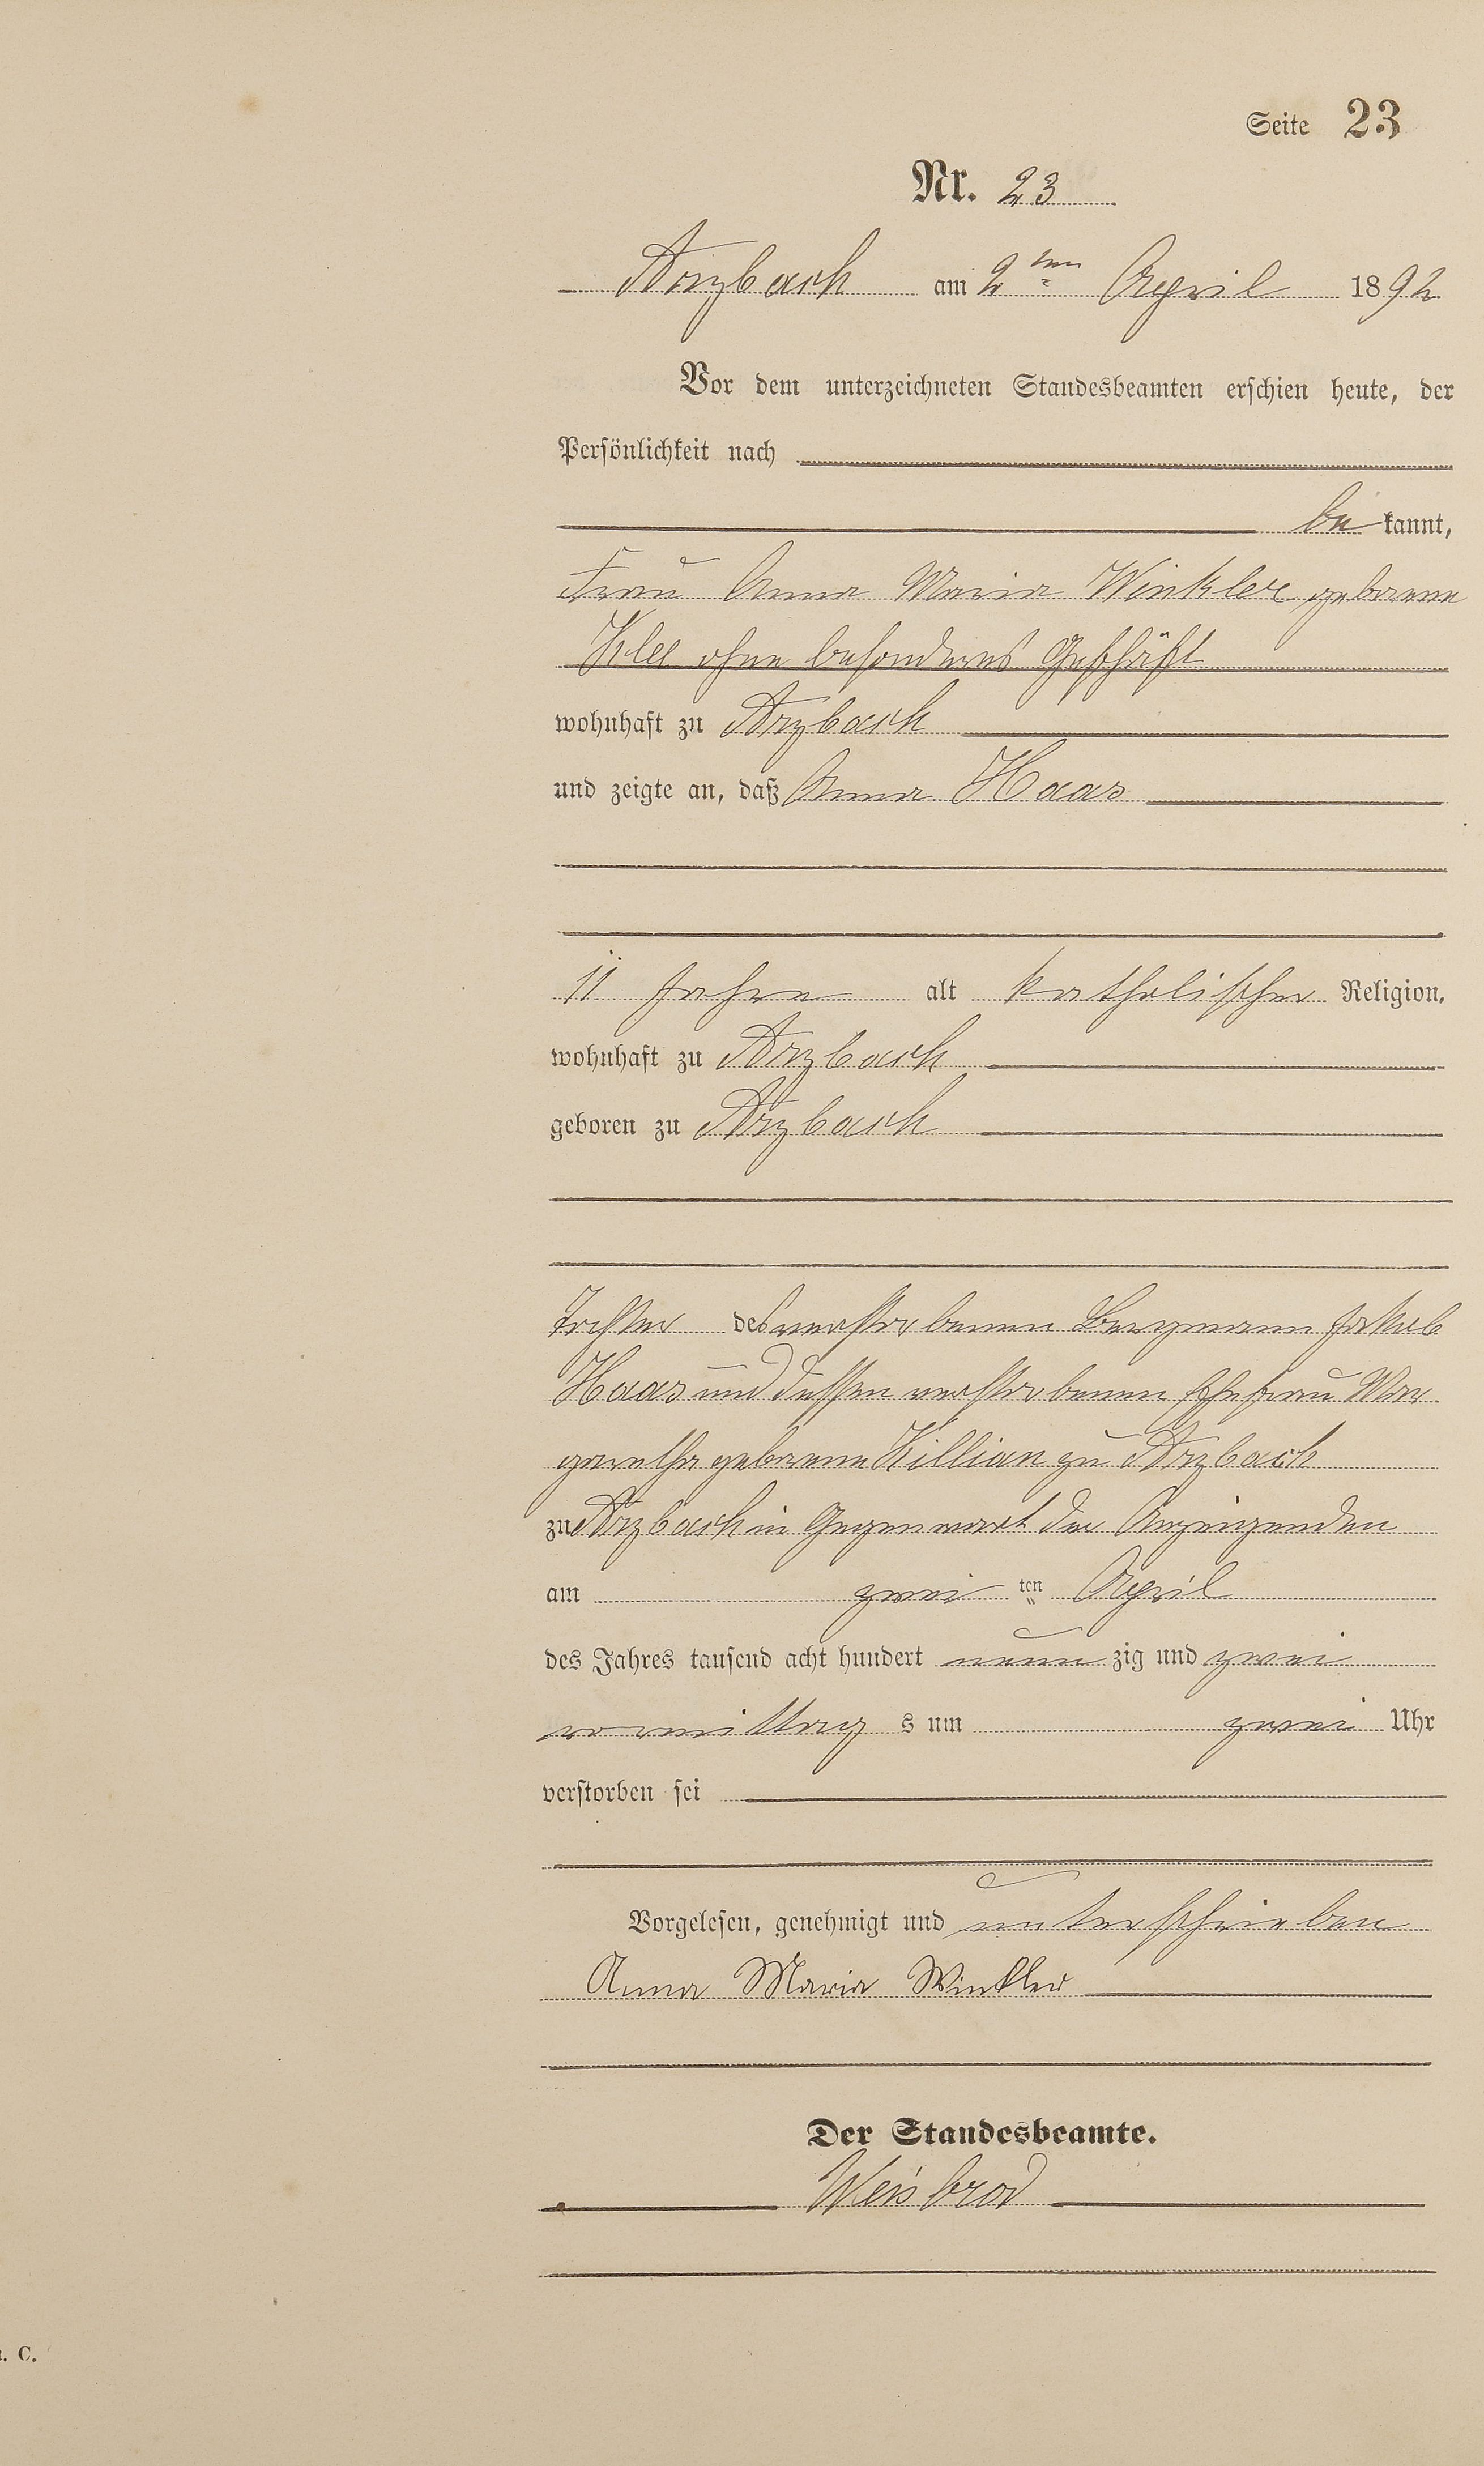 Seite 23
Nr. 23
Arzbach am 2ten April 1892
Vor dem unterzeichneten Standesbeamten erschien heute, der
Persönlichkeit nach
be kannt,
Frau Anna Maria Winkler geborene
Klee ohne besonderes Geschäft
wohnhaft zu Arzbach
und zeigte an, daß Anna Haas
11 Jahre alt katholischer Religion,
wohnhaft zu Arzbach
geboren zu Arzbach
Tochter des verstorbenen Bergmann Jakob
Haas und dessen verstorbenen Ehefrau Mar
garetha geborene Killian zu Arzbach
zu Arzbach in Gegenwart der Anzeigenden
am zwei ten April
des Jahres tausend acht hundert neun zig und zwei
vormittag s um zwei Uhr
verstorben sei
Vorgelesen, genehmigt und unterschrieben
Anna Maria Winkler
Der Standesbeamte.
Weisbrod
. C.